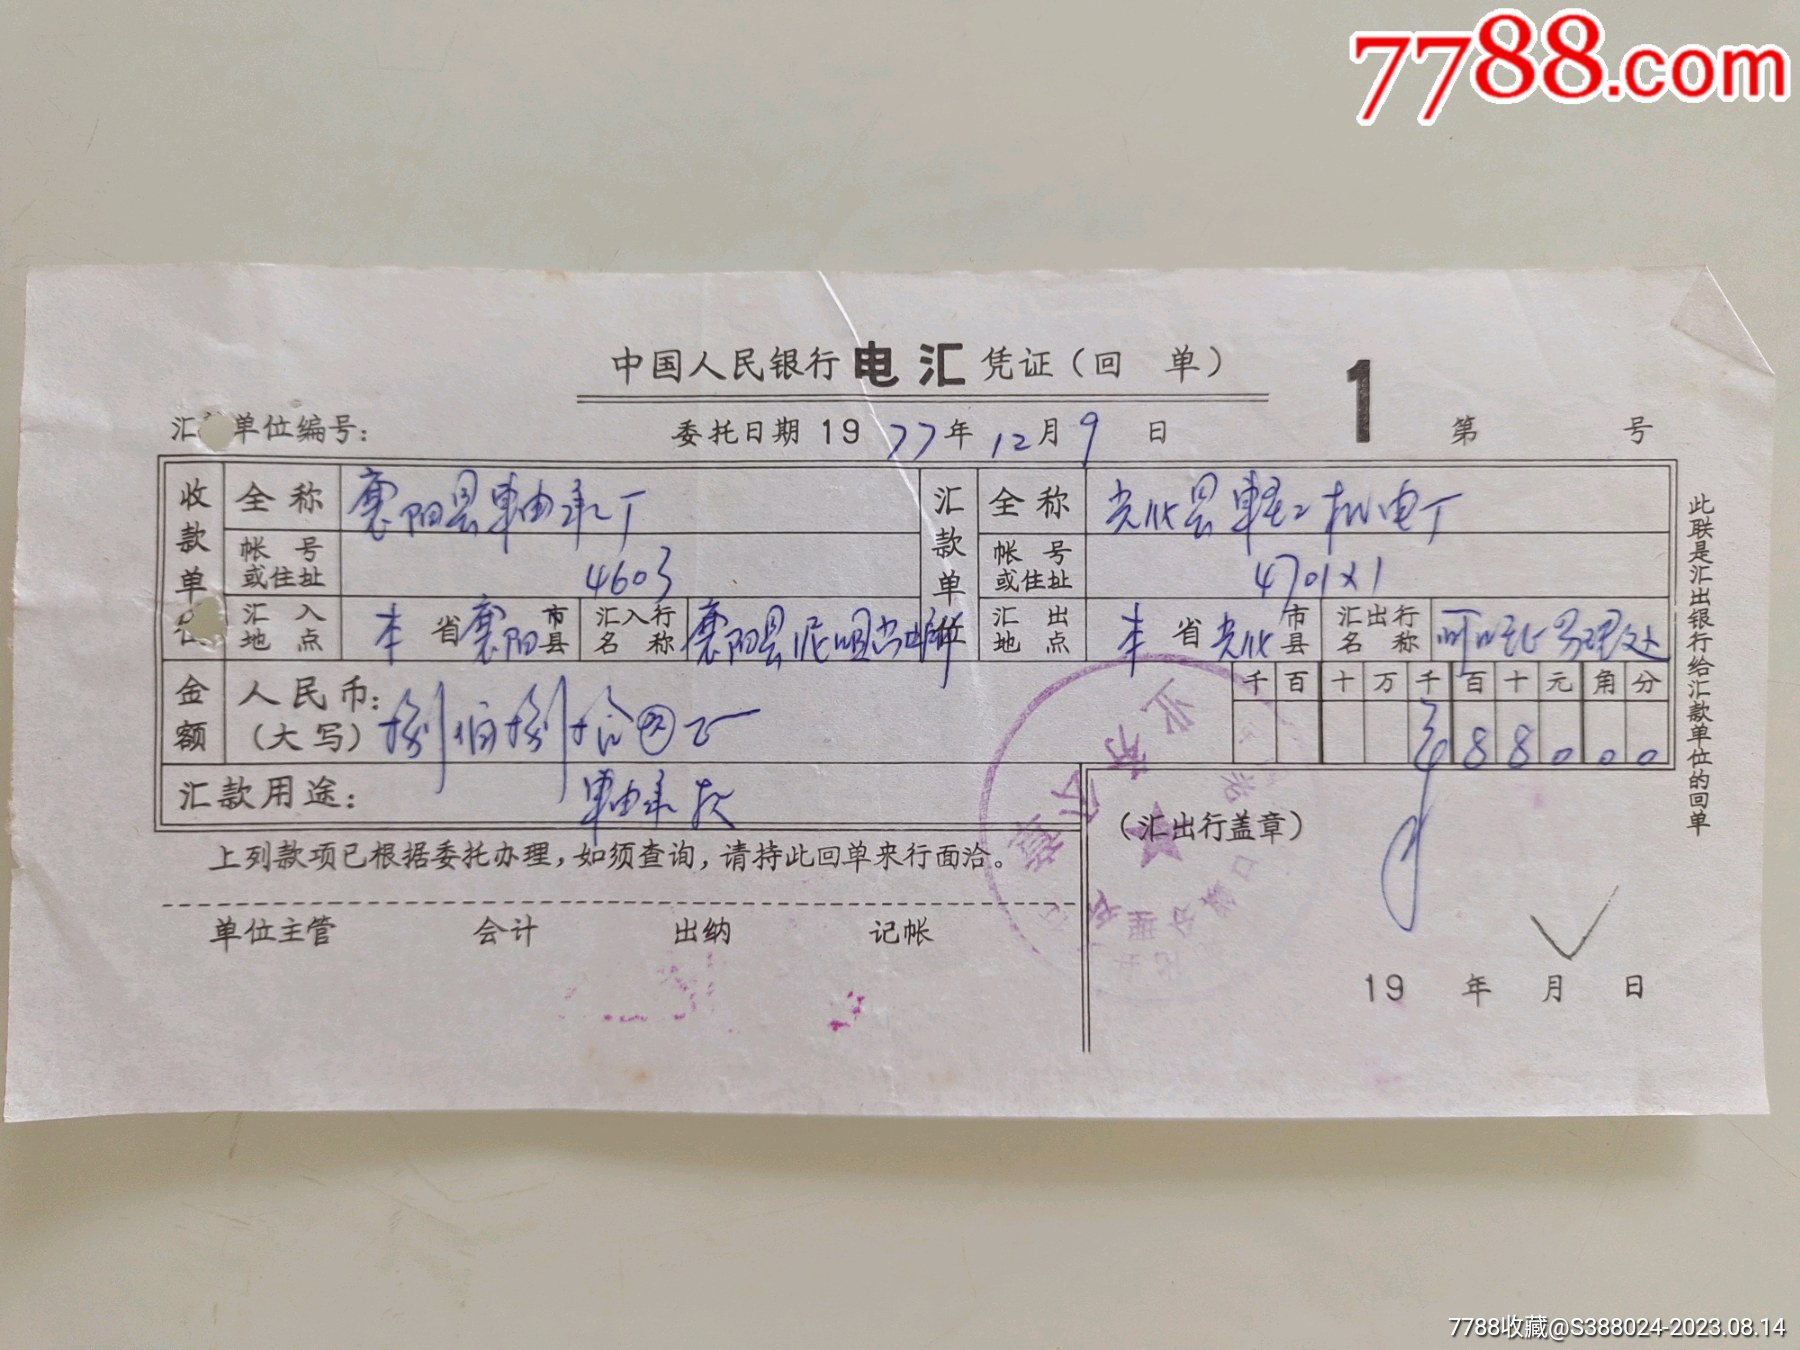 7788.com
中国人民银行电汇凭证(回 单)
1
汇 单位编号:
委托日期1977年12月9日
第 号
收款单位
全称
襄阳县轴承厂
帐号或住址
4603
汇入地点
本省襄阳市县
汇入行名称
襄阳县泥咀
汇款单位
全称
光化县轻工机电厂
帐号或住址
4701x1
汇出地点
本省光化市县
汇出行名称
办理处
金额
人民币:
(大写)
捌佰捌拾元正
千百十万千百十元角分
88000
汇款用途:
轴承款
(汇出行盖章)
上列款项已根据委托办理,如须查询,请持此回单来行面洽。
单位主管 会计 出纳 记帐
19 年 月 日
此联是汇出银行给汇款单位的回单
7788收藏@S388024-2023.08.14